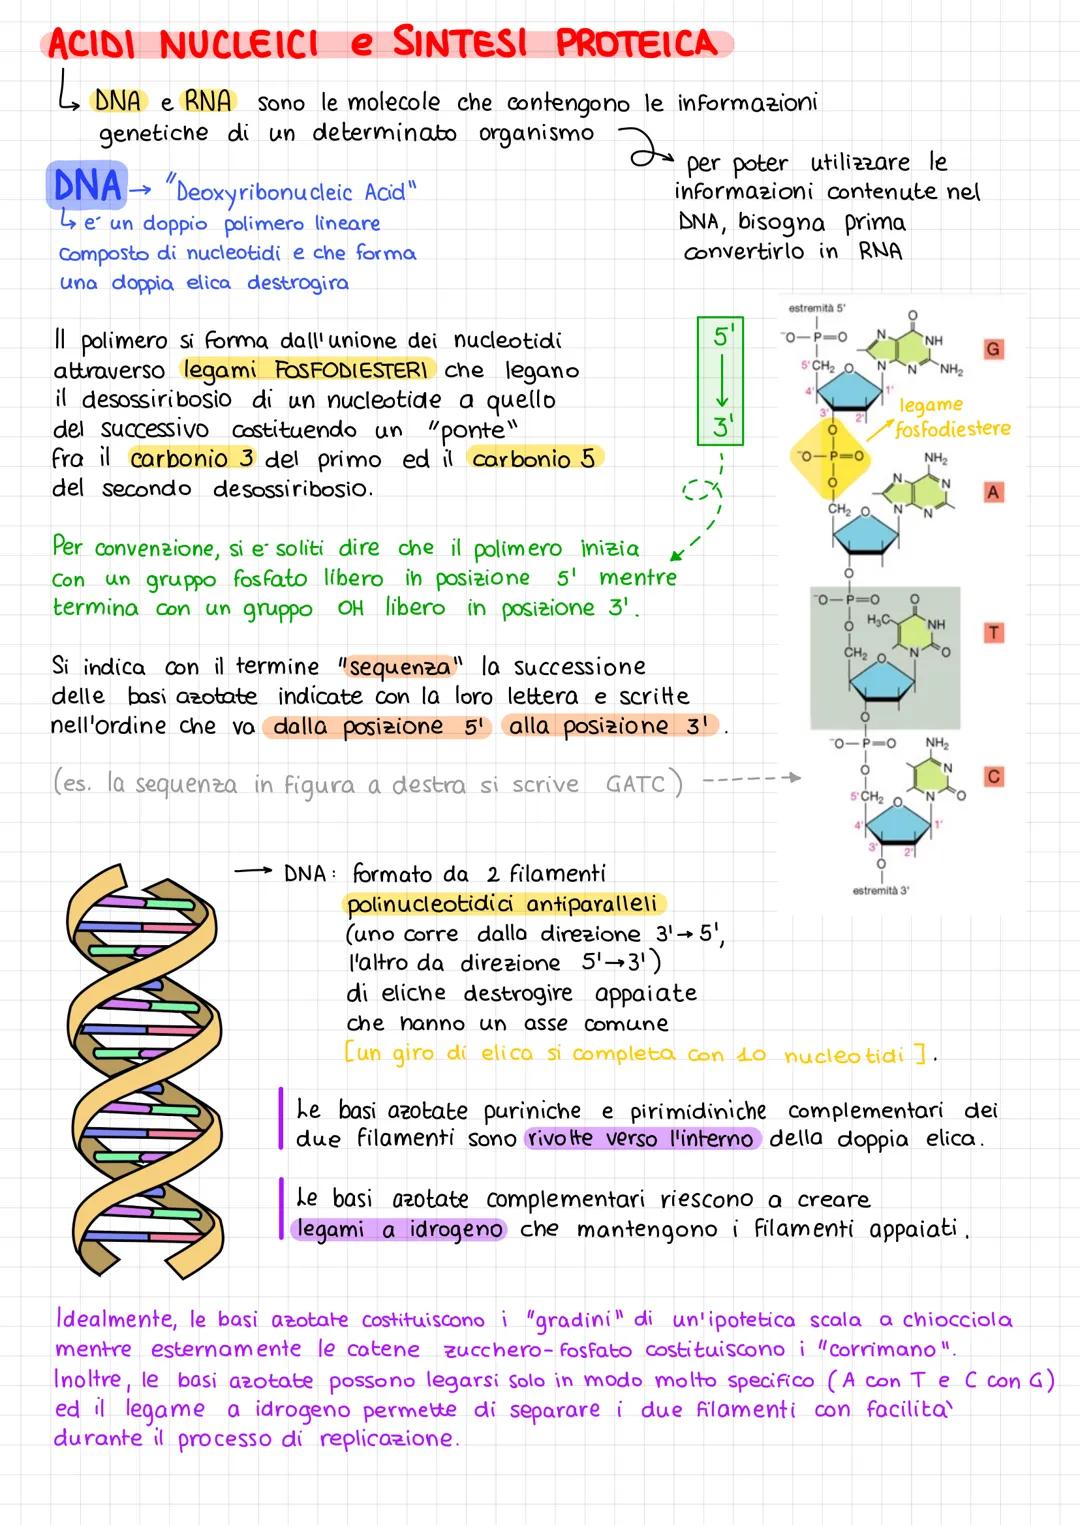 ACIDI NUCLEICI e SINTESI PROTEICA
DNA e RNA sono le molecole che contengono le informazioni
genetiche di un determinato organismo
per poter utilizzare le
informazioni contenute nel
DNA, bisogna prima
convertirlo in RNA
DNA → "Deoxyribonucleic Acid"
è un doppio polimero lineare
composto di nucleotidi e che forma
una doppia elica destrogira
Il polimero si forma dall'unione dei nucleotidi
attraverso legami FOSFODIESTERI che legano
il desossiribosio di un nucleotide a quello
del successivo costituendo un "ponte"
fra il carbonio 3 del primo ed il carbonio 5
del secondo desossiribosio.
5'
3'
Per convenzione, si è soliti dire che il polimero inizia
con un gruppo fosfato libero in posizione 5' mentre
termina con un gruppo OH libero in posizione 3'.
Si indica con il termine "sequenza" la successione
delle basi azotate indicate con la loro lettera e scritte
nell'ordine che va dalla posizione 5' alla posizione 3'.
(es. la sequenza in figura a destra si scrive GATC)
estremità 5'
⁻O-P=O
O
N
NH
N
N
NH₂
G
5'CH₂ O
4'
1'
3'
2'
legame
fosfodiestere
O
⁻O-P=O
O
NH₂
N
N
N
N
A
CH₂ O
O
⁻O-P=O
O
O
H₃C
NH
N
O
T
CH₂ O
O
⁻O-P=O
O
NH₂
N
N
O
C
5'CH₂ O
4'
1'
3'
2'
O
estremità 3'
→ DNA: formato da 2 filamenti
polinucleotidici antiparalleli
(uno corre dalla direzione 3'→5',
l'altro da direzione 5'→3')
di eliche destrogire appaiate
che hanno un asse comune
[un giro di elica si completa con 10 nucleotidi].
Le basi azotate puriniche e pirimidiniche complementari dei
due filamenti sono rivolte verso l'interno della doppia elica.
Le basi azotate complementari riescono a creare
legami a idrogeno che mantengono i filamenti appaiati.
Idealmente, le basi azotate costituiscono i "gradini" di un'ipotetica scala a chiocciola
mentre esternamente le catene zucchero-fosfato costituiscono i "corrimano".
Inoltre, le basi azotate possono legarsi solo in modo molto specifico (A con T e C con G)
ed il legame a idrogeno permette di separare i due filamenti con facilità
durante il processo di replicazione.